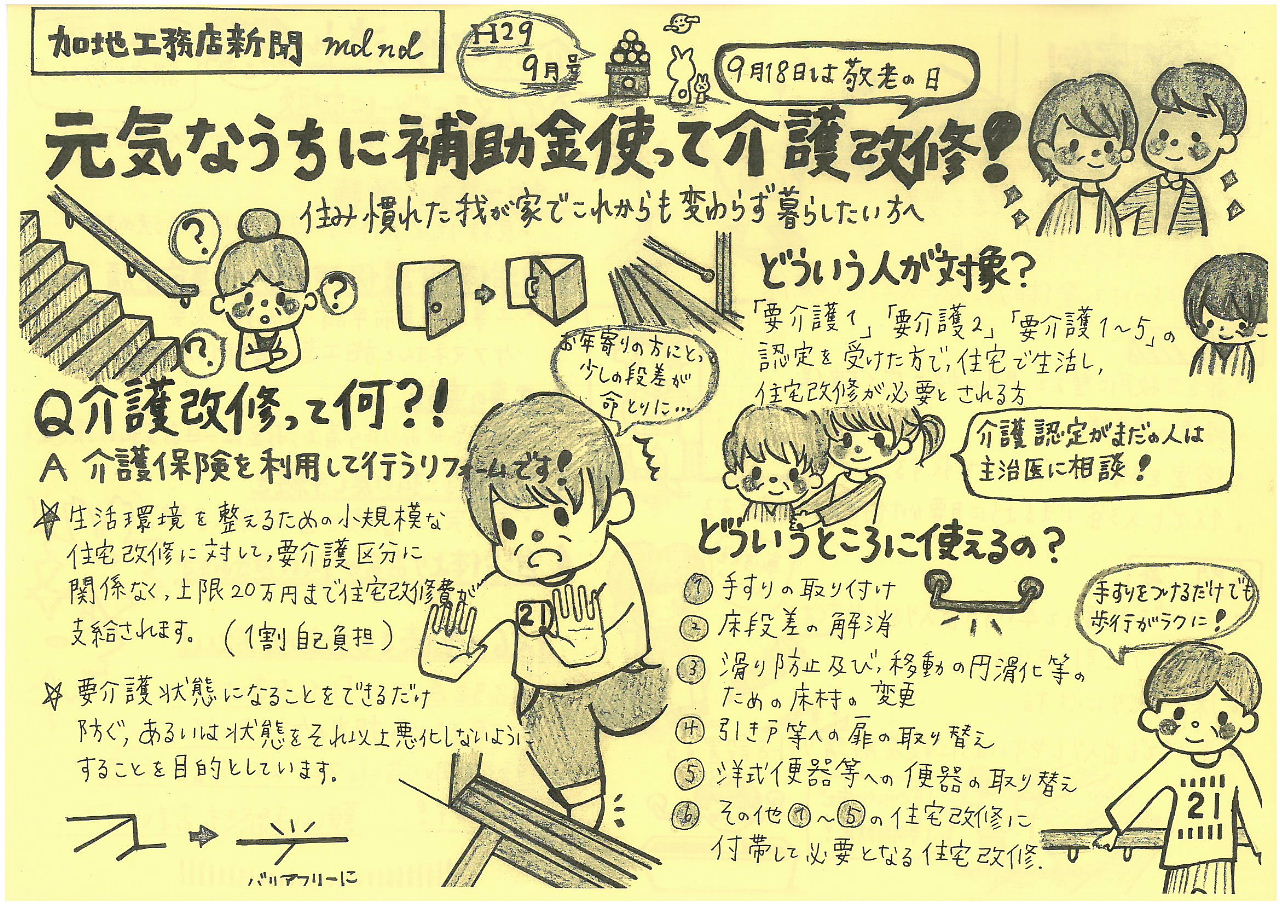 加地工務店新聞 mdnd
H29
9月号
9月18日は敬老の日
元気なうちに補助金使って介護改修!
住み慣れた我が家でこれからも変わらず暮らしたい方へ
?
?
?
Q介護改修って何?!
A 介護保険を利用して行うリフォームです!
☆生活環境を整えるための小規模な
住宅改修に対して,要介護区分に
関係なく,上限20万円まで住宅改修費が
支給されます。(1割自己負担)
☆要介護状態になることをできるだけ
防ぐ,あるいは状態をそれ以上悪化しないように
することを目的としています。
バリアフリーに
お年寄りの方にとって
少しの段差が
命とりに…
21
どういう人が対象?
「要介護1」「要介護2」「要介護1~5」の
認定を受けた方で,住宅で生活し,
住宅改修が必要とされる方
介護認定がまだの人は
主治医に相談!
どういうところに使えるの?
① 手すりの取り付け
② 床段差の解消
③ 滑り防止及び,移動の円滑化等の
ための床材の変更
④ 引き戸等への扉の取り替え
⑤ 洋式便器等への便器の取り替え
⑥ その他①~⑤の住宅改修に
付帯して必要となる住宅改修.
手すりをつけるだけでも
歩行がラクに!
21